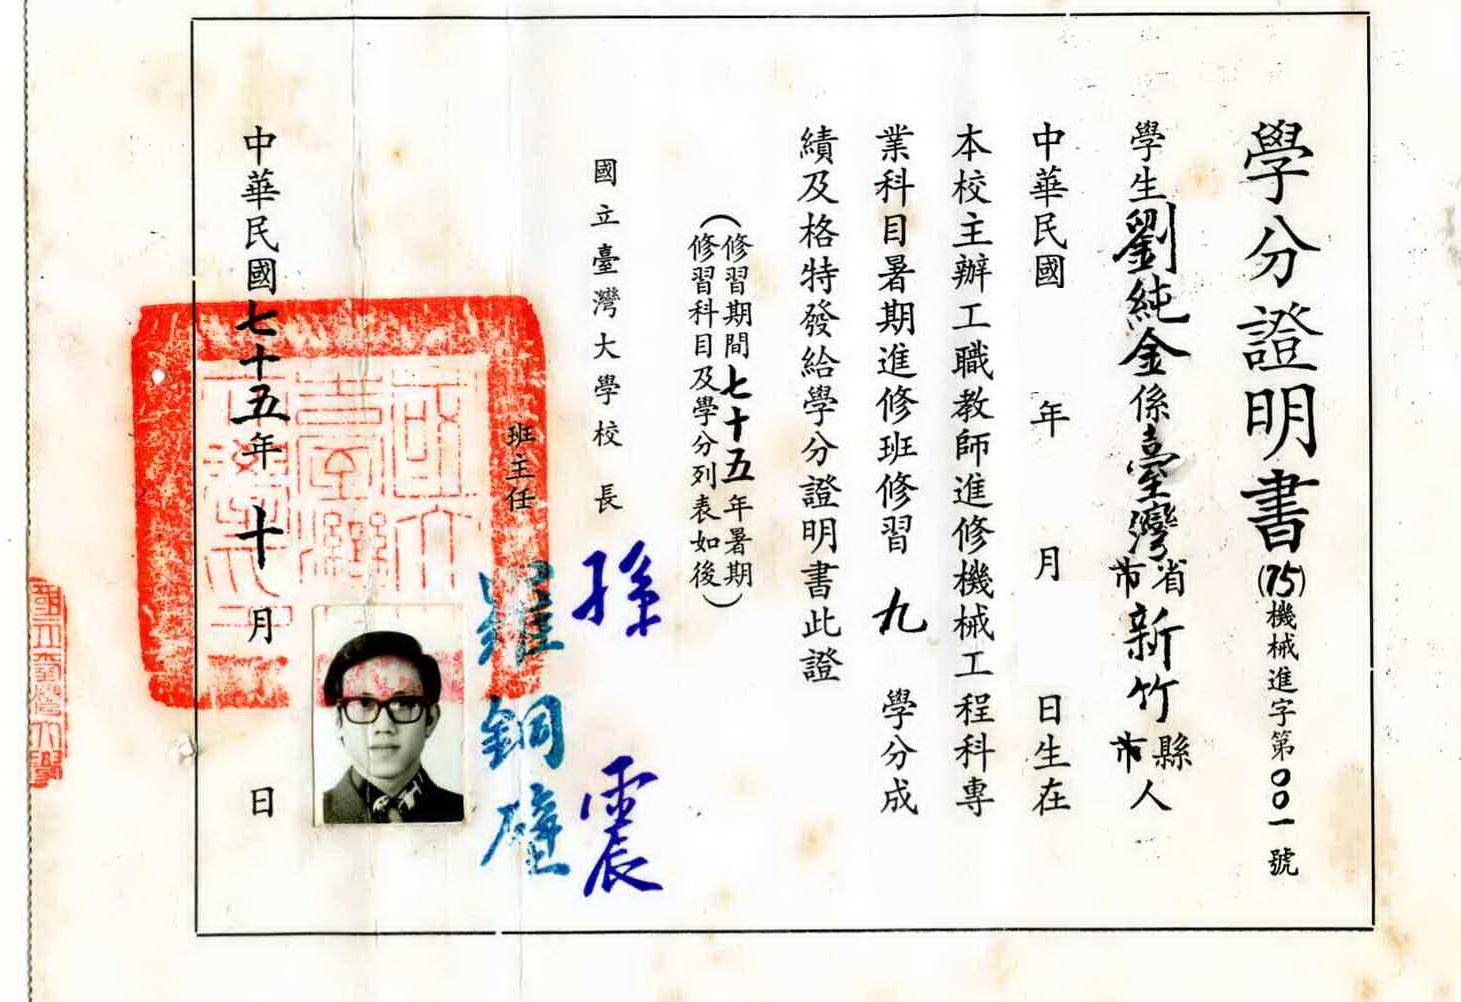 學分證明書(75)機械進字第00一號
學生劉純金係臺灣省市新竹縣市人
中華民國 年 月 日生在
本校主辦工職教師進修機械工程科專
業科目暑期進修班修習 九 學分成
績及格特發給學分證明書此證
(修習期間七十五年暑期
修習科目及學分列表如後)
國立臺灣大學校長 孫震
班主任 羅銅壁
中華民國七十五年十月 日